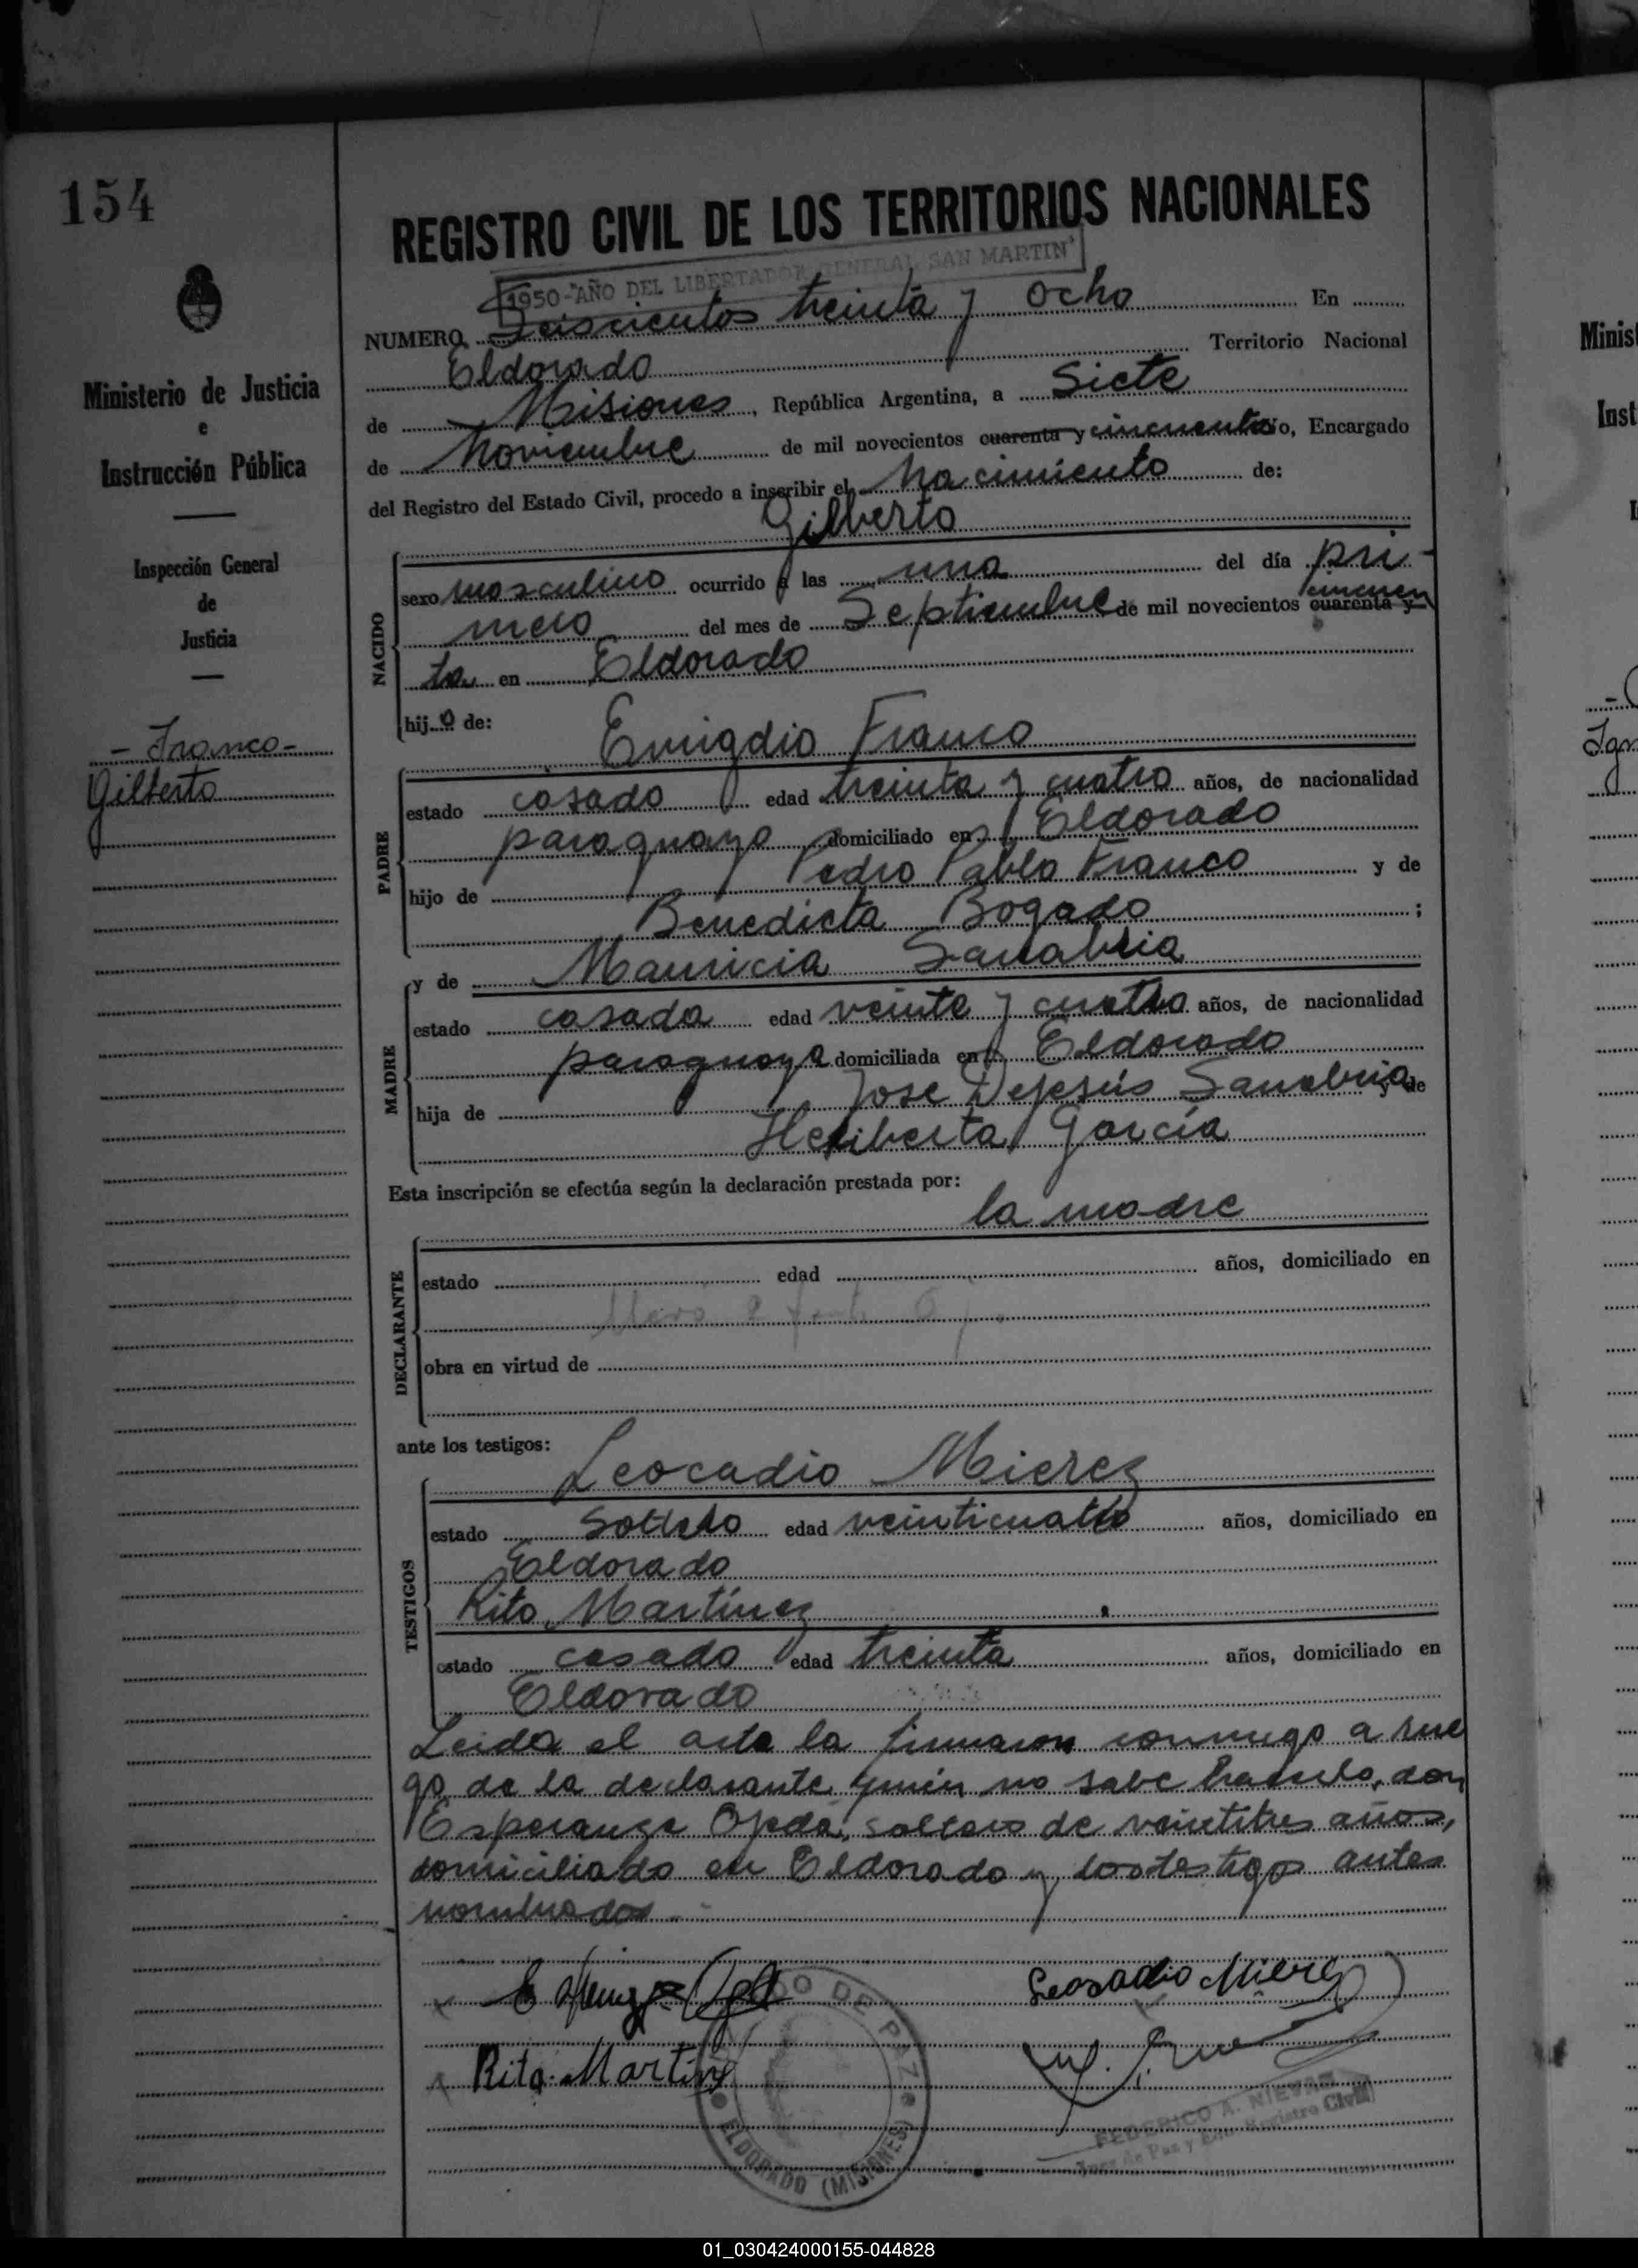 154
REGISTRO CIVIL DE LOS TERRITORIOS NACIONALES
1950-"AÑO DEL LIBERTADOR GENERAL SAN MARTIN"
NUMERO Seiscientos treinta y ocho En
Eldorado Territorio Nacional
de Misiones, República Argentina, a Siete
de Noviembre de mil novecientos cuarenta y cincuenta yo, Encargado
del Registro del Estado Civil, procedo a inscribir el Nacimiento de:
Gilberto
NACIDO
sexo masculino ocurrido a las una del día pri-
mero del mes de Septiembre de mil novecientos cuarenta y cincuen
ta en Eldorado
hijo de: Emigdio Franco
PADRE
estado casado edad treinta y cuatro años, de nacionalidad
paraguayo domiciliado en Eldorado
hijo de Pedro Pablo Franco y de
Benedicta Bogado ;
y de Mauricia Sanabria
MADRE
estado casada edad veinte y cuatro años, de nacionalidad
paraguaya domiciliada en Eldorado
hija de Jose Dejesús Sanabria y de
Heriberta García
Esta inscripción se efectúa según la declaración prestada por:
la madre
DECLARANTE
estado edad años, domiciliado en
obra en virtud de
ante los testigos:
Leocadio Mierez
TESTIGOS
estado Soltero edad veinticuatro años, domiciliado en
Eldorado
Rito Martínez
estado casado edad treinta años, domiciliado en
Eldorado
Leida el acta la firmaron conmigo a rue
go de la declarante quién no sabe hacerlo, don
Esperanza Ojeda, soltero de veintitres años,
domiciliado en Eldorado y los testigos antes
nombrados
Leocadio Mierez
Rito Martinez
JUZGADO DE PAZ
ELDORADO (MISIONES)
FEDERICO A. NIEVAS
Juez de Paz y Enc. Registro Civil
Ministerio de Justicia
e
Instrucción Pública
Inspección General
de
Justicia
- Franco -
Gilberto
Minist
Inst
01_030424000155-044828